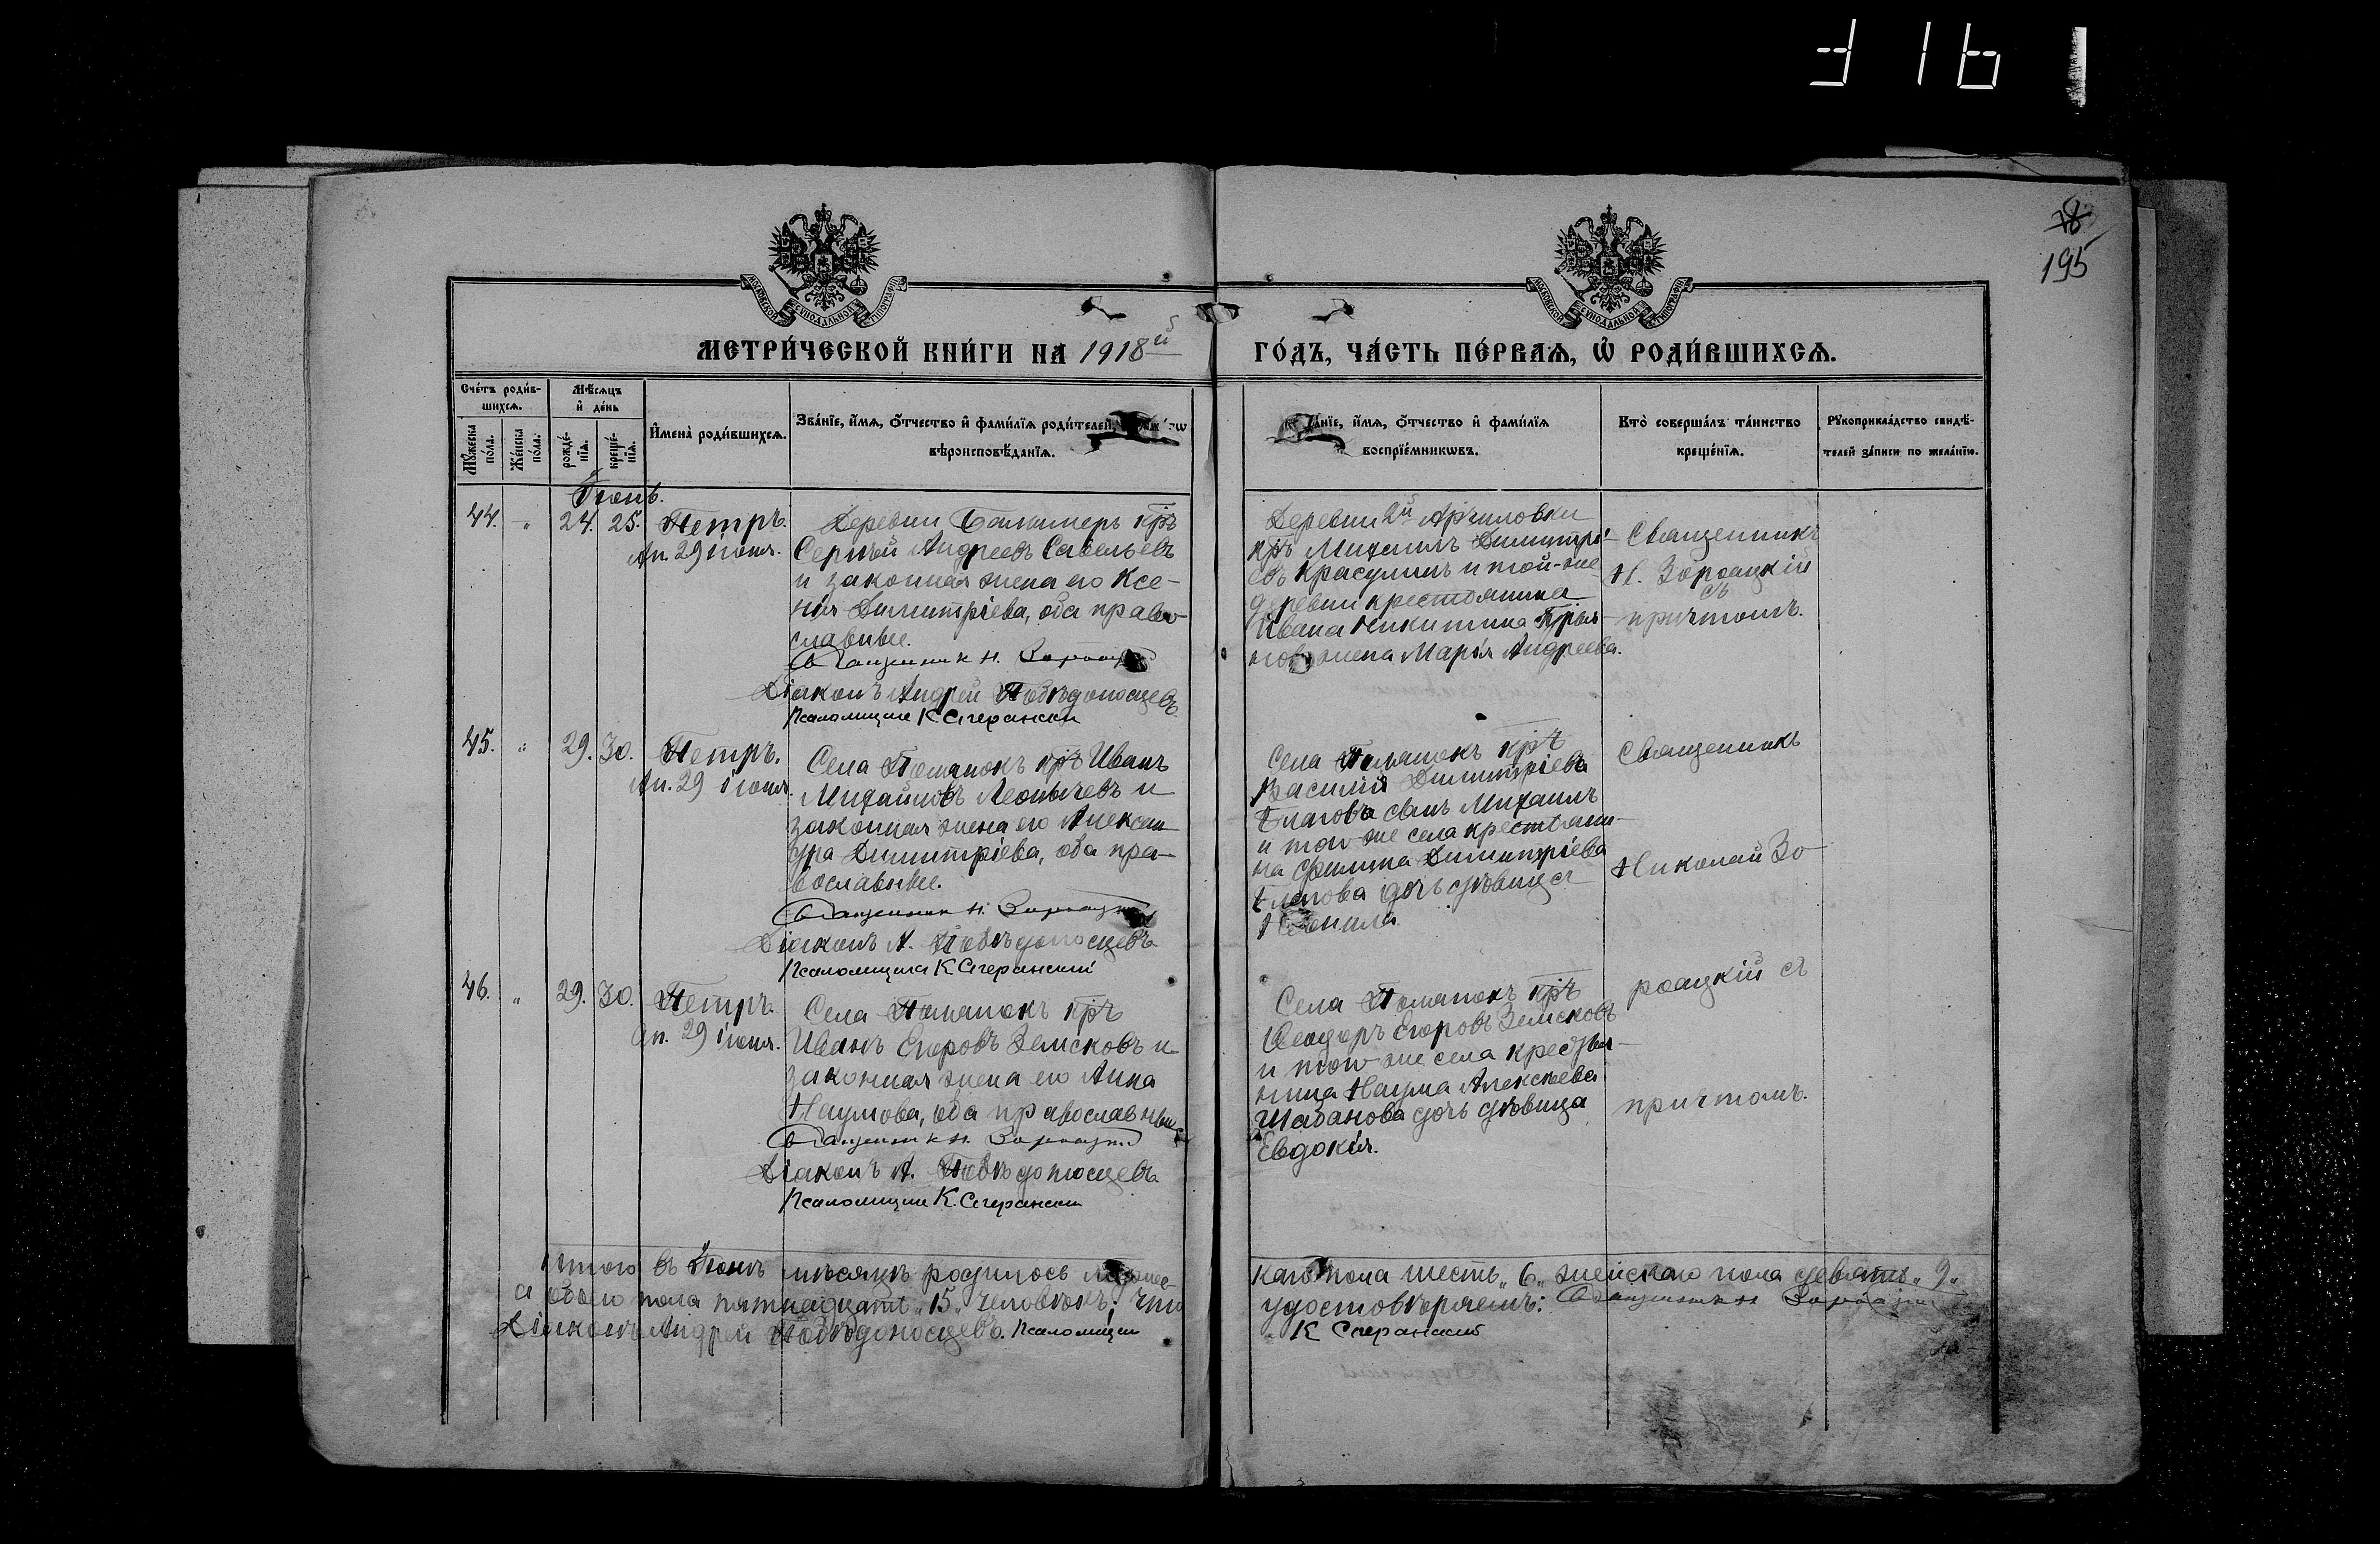 195
МОСКОВСКОЙ СѴНОДАЛЬНОЙ ТИПОГРАФІИ
МОСКОВСКОЙ СѴНОДАЛЬНОЙ ТИПОГРАФІИ
МЕТРИ́ЧЕСКОЙ КНИ́ГИ НА 1918й
ГО́ДЪ, ЧА́СТЬ ПЕ́РВАЯ, Ѽ РОДИ́ВШИХСЯ.
Сче́тъ роди́в-
шихся.
Мѣ́сяцъ
и҆ де́нь
Мꙋ́жеска по́ла.
Же́нска по́ла.
рожде́-
нїя.
креще́-
нїя.
И҆мена̀ роди́вшихся.
Зва́нїе, и҆́мя, ѻ҆́тчество и҆ фами́лїя роди́телей,
вѣроисповѣ́данїя.
и҆́мя, ѻ҆́тчество и҆ фами́лїя
воспрїе́мникѡвъ.
Кто̀ соверша́лъ та́инство
креще́нїя.
Рꙋкоприкла́дство свидѣ́-
телей за́писи по жела́нїю.
Іюнь.
44. " 24. 25. Петръ.
Ап. 29 іюня.
Деревни крѣ
Сергѣй Андреевъ Савельевъ
и законная жена его Ксе-
нія Димитріева, оба право-
славные.
Священникъ Н.
Діаконъ Андрей Побѣдоносцевъ
Псаломщикъ К Сперанскій
Деревни 2й
крѣ Михаилъ Димитрі-
евъ Красулинъ и той-же
деревни крестьянина
Ивана Никитина
жена Марія Андреева.
Священникъ
Н.
съ
причтомъ.
45. " 29. 30. Петръ.
Ап. 29 іюня.
Села крѣ Иванъ
Михайловъ и
законная жена его Алексан-
дра Димитріева, оба пра-
вославные.
Священникъ Н.
Діаконъ А. Побѣдоносцевъ
Псаломщикъ К Сперанскій
Села крѣ
Василія Димитріева
сынъ Михаилъ
и того-же села крестьяни-
на Филиппа Димитріева
дочь дѣвица
Священникъ
Николай Зо
46. " 29. 30. Петръ.
Ап. 29 іюня.
Села крѣ
Иванъ Егоровъ Земсковъ и
законная жена его Анна
Наумова, оба православные
Священникъ Н.
Діаконъ А. Побѣдоносцевъ
Псаломщикъ К. Сперанскій
Села крѣ
Ѳеодоръ Егоровъ Земсковъ
и того-же села крестья-
нина Наума Алексѣева
Шабанова дочь дѣвица
Евдокія.
съ
причтомъ.
Итого въ Іюнѣ мѣсяцѣ родилось мужес-
каго пола шесть „6„ женскаго пола девять „9„
а обоего пола пятнадцать „15„ человѣкъ; что
удостовѣряемъ: Священникъ Н.
Діаконъ Андрей Побѣдоносцевъ. Псаломщикъ
К Сперанскій